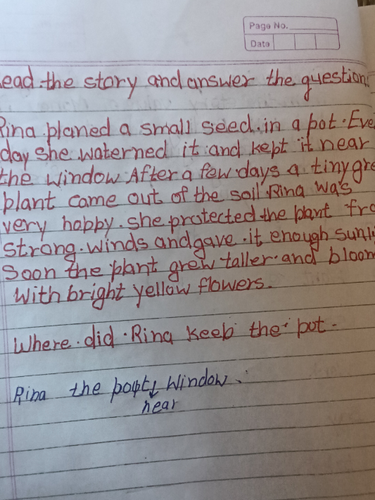 Page No.
Date
ead the story and answer the question
Rina planed a small seed in a pot. Eve
day she waterned it and kept it near
the window After a few days a tiny gre
plant came out of the soil Rina was
very hobby. she protected the plant fro
strong. winds and gave it enough sunli
Soon the plant grew taller and bloom
With bright yellow flowers.
Where did Rina keeb the pot.
Rina the pot Window.
near